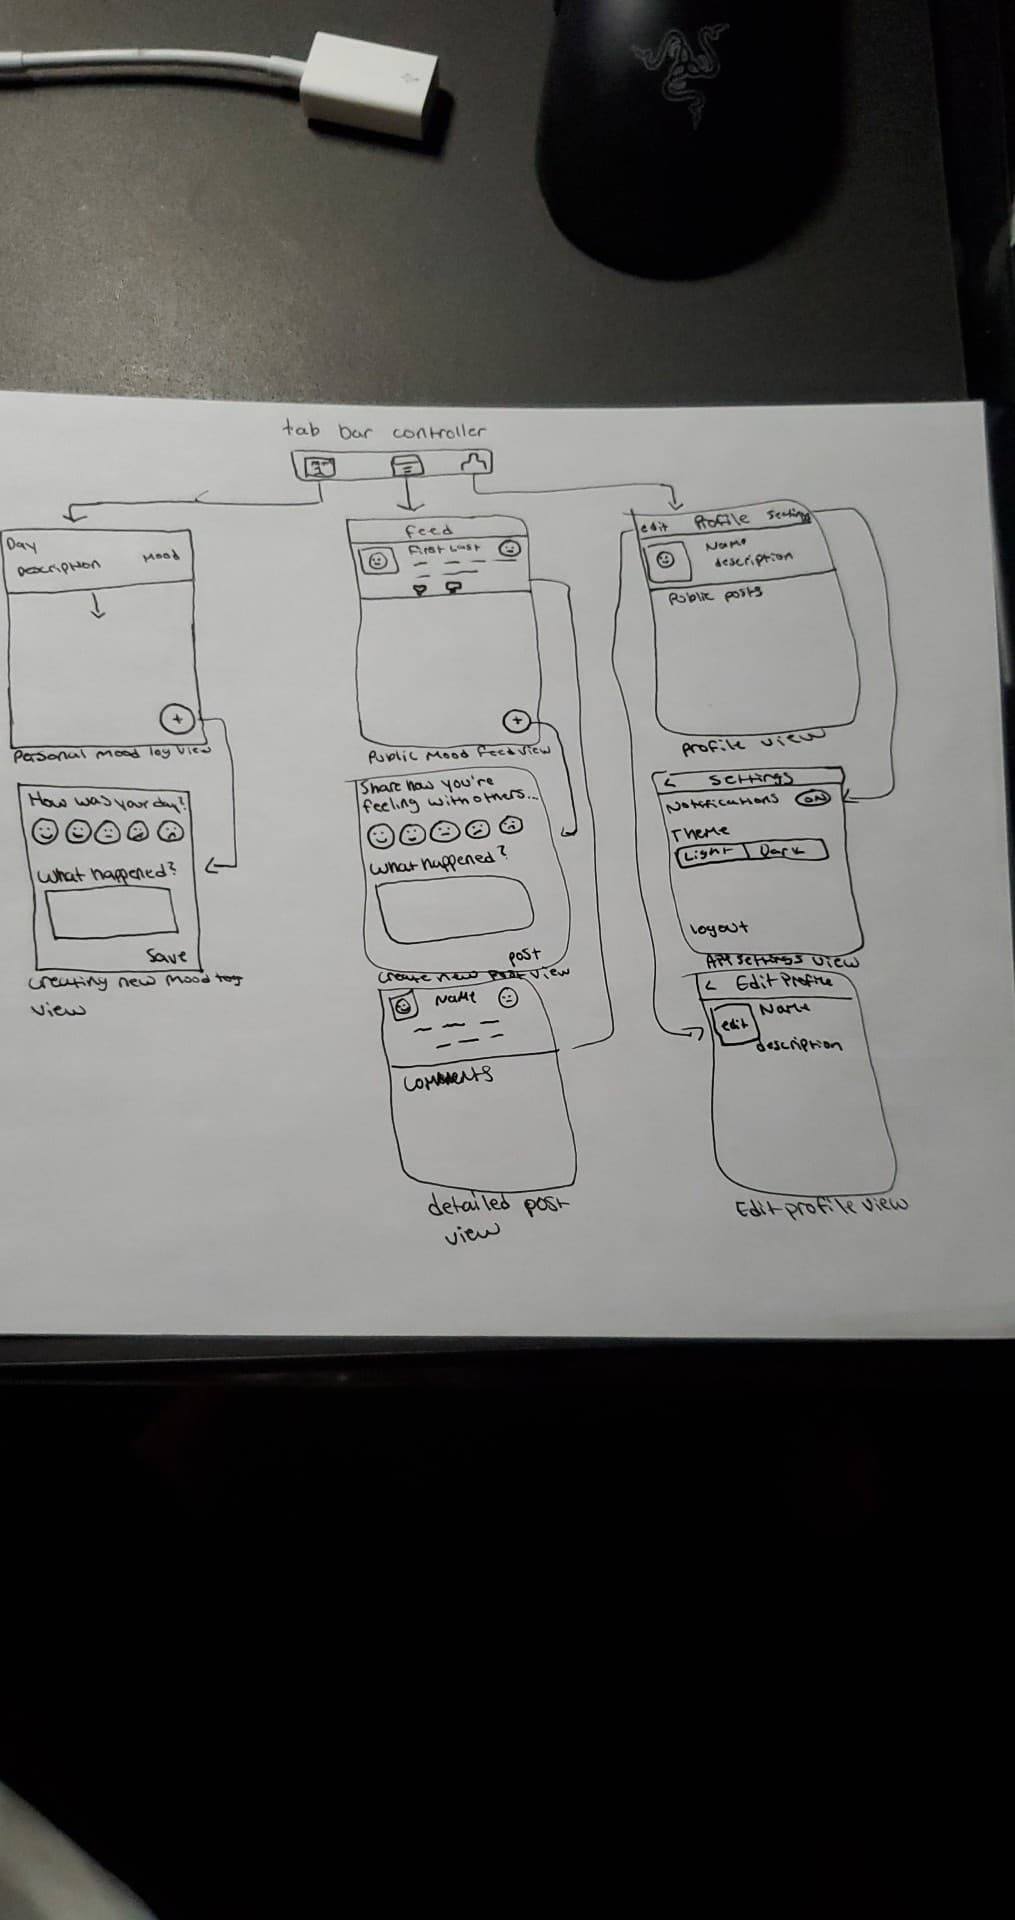 tab bar controller
Day
Description Mood
+
Personal Mood log view
How was your day?
What happened?
Save
creating new mood log
view
Feed
First Last
+
Public Mood Feed view
Share how you're
feeling with others...
What happened?
post
create new post view
Name
comments
detailed post
view
edit Profile settings
Name
description
Public posts
profile view
< settings
Notifications ON
Theme
Light Dark
logout
settings view
< Edit Profile
edit Name
description
Edit profile view